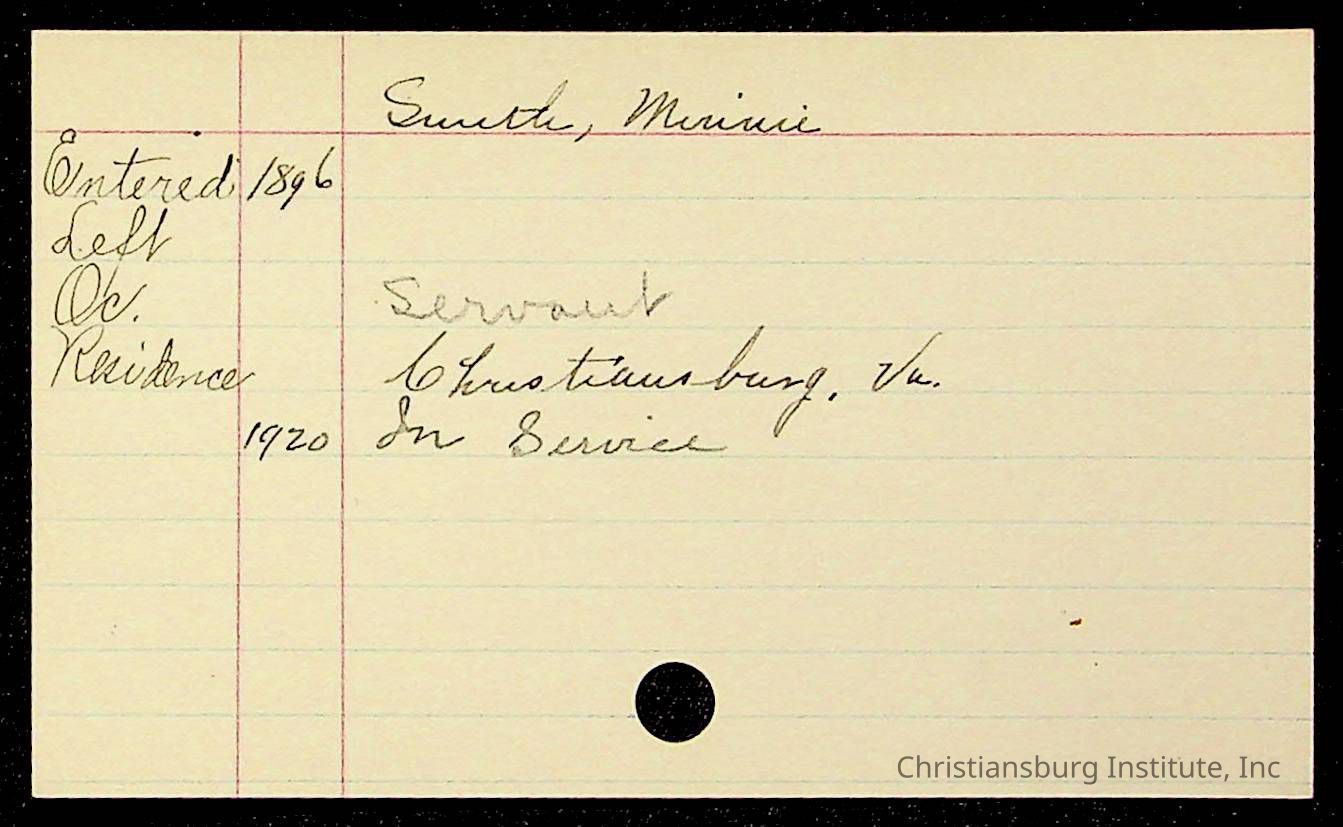 Smith, Minnie
Entered 1896
Left
Oc. Servant
Residence Christiansburg, Va.
1920 In Service
Christiansburg Institute, Inc